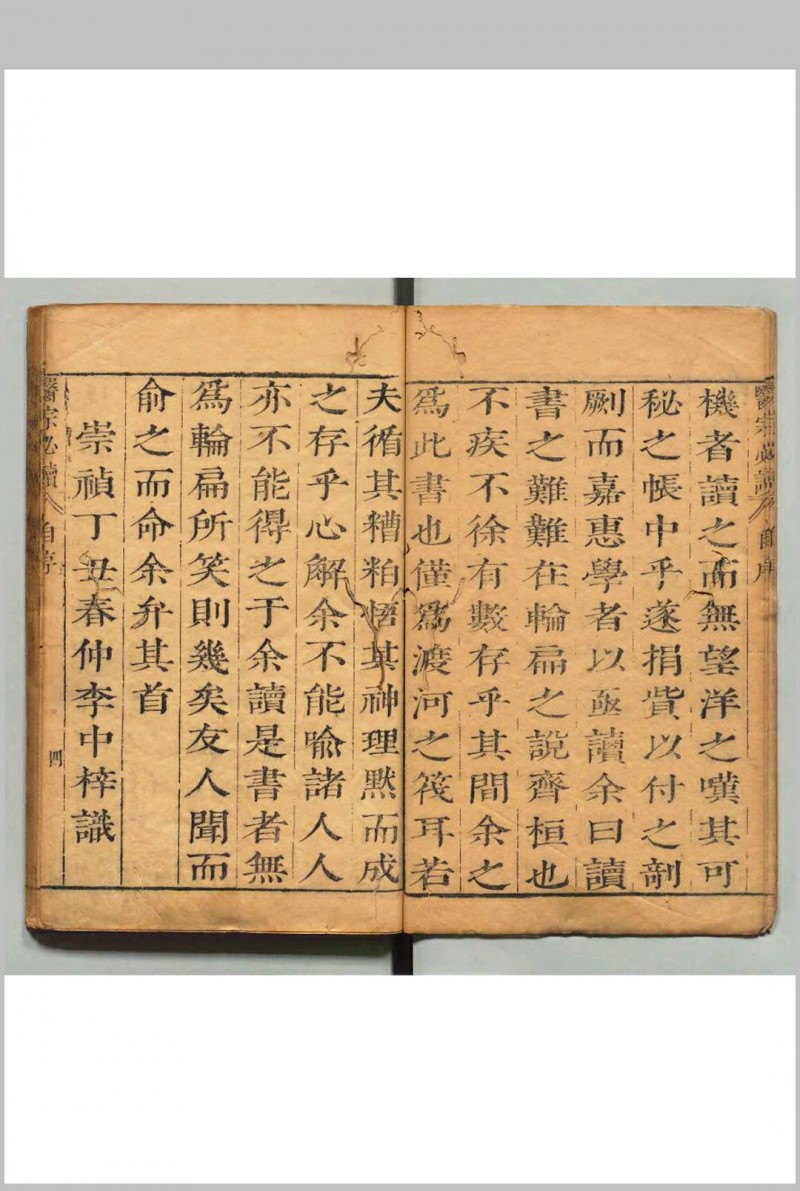 機者讀之而無望洋之嘆其可
秘之帳中乎遂捐貲以付之剞
劂而嘉惠學者以亟讀余曰讀
書之難難在輪扁之說齊桓也
不疾不徐有數存乎其間余之
爲此書也僅爲渡河之筏耳若
夫循其糟粕悟其神理默而成
之存乎心解余不能喻諸人人
亦不能得之于余讀是書者無
爲輪扁所笑則幾矣友人聞而
俞之而命余弁其首
崇禎丁丑春仲李中梓識
醫宗必讀 自序
四